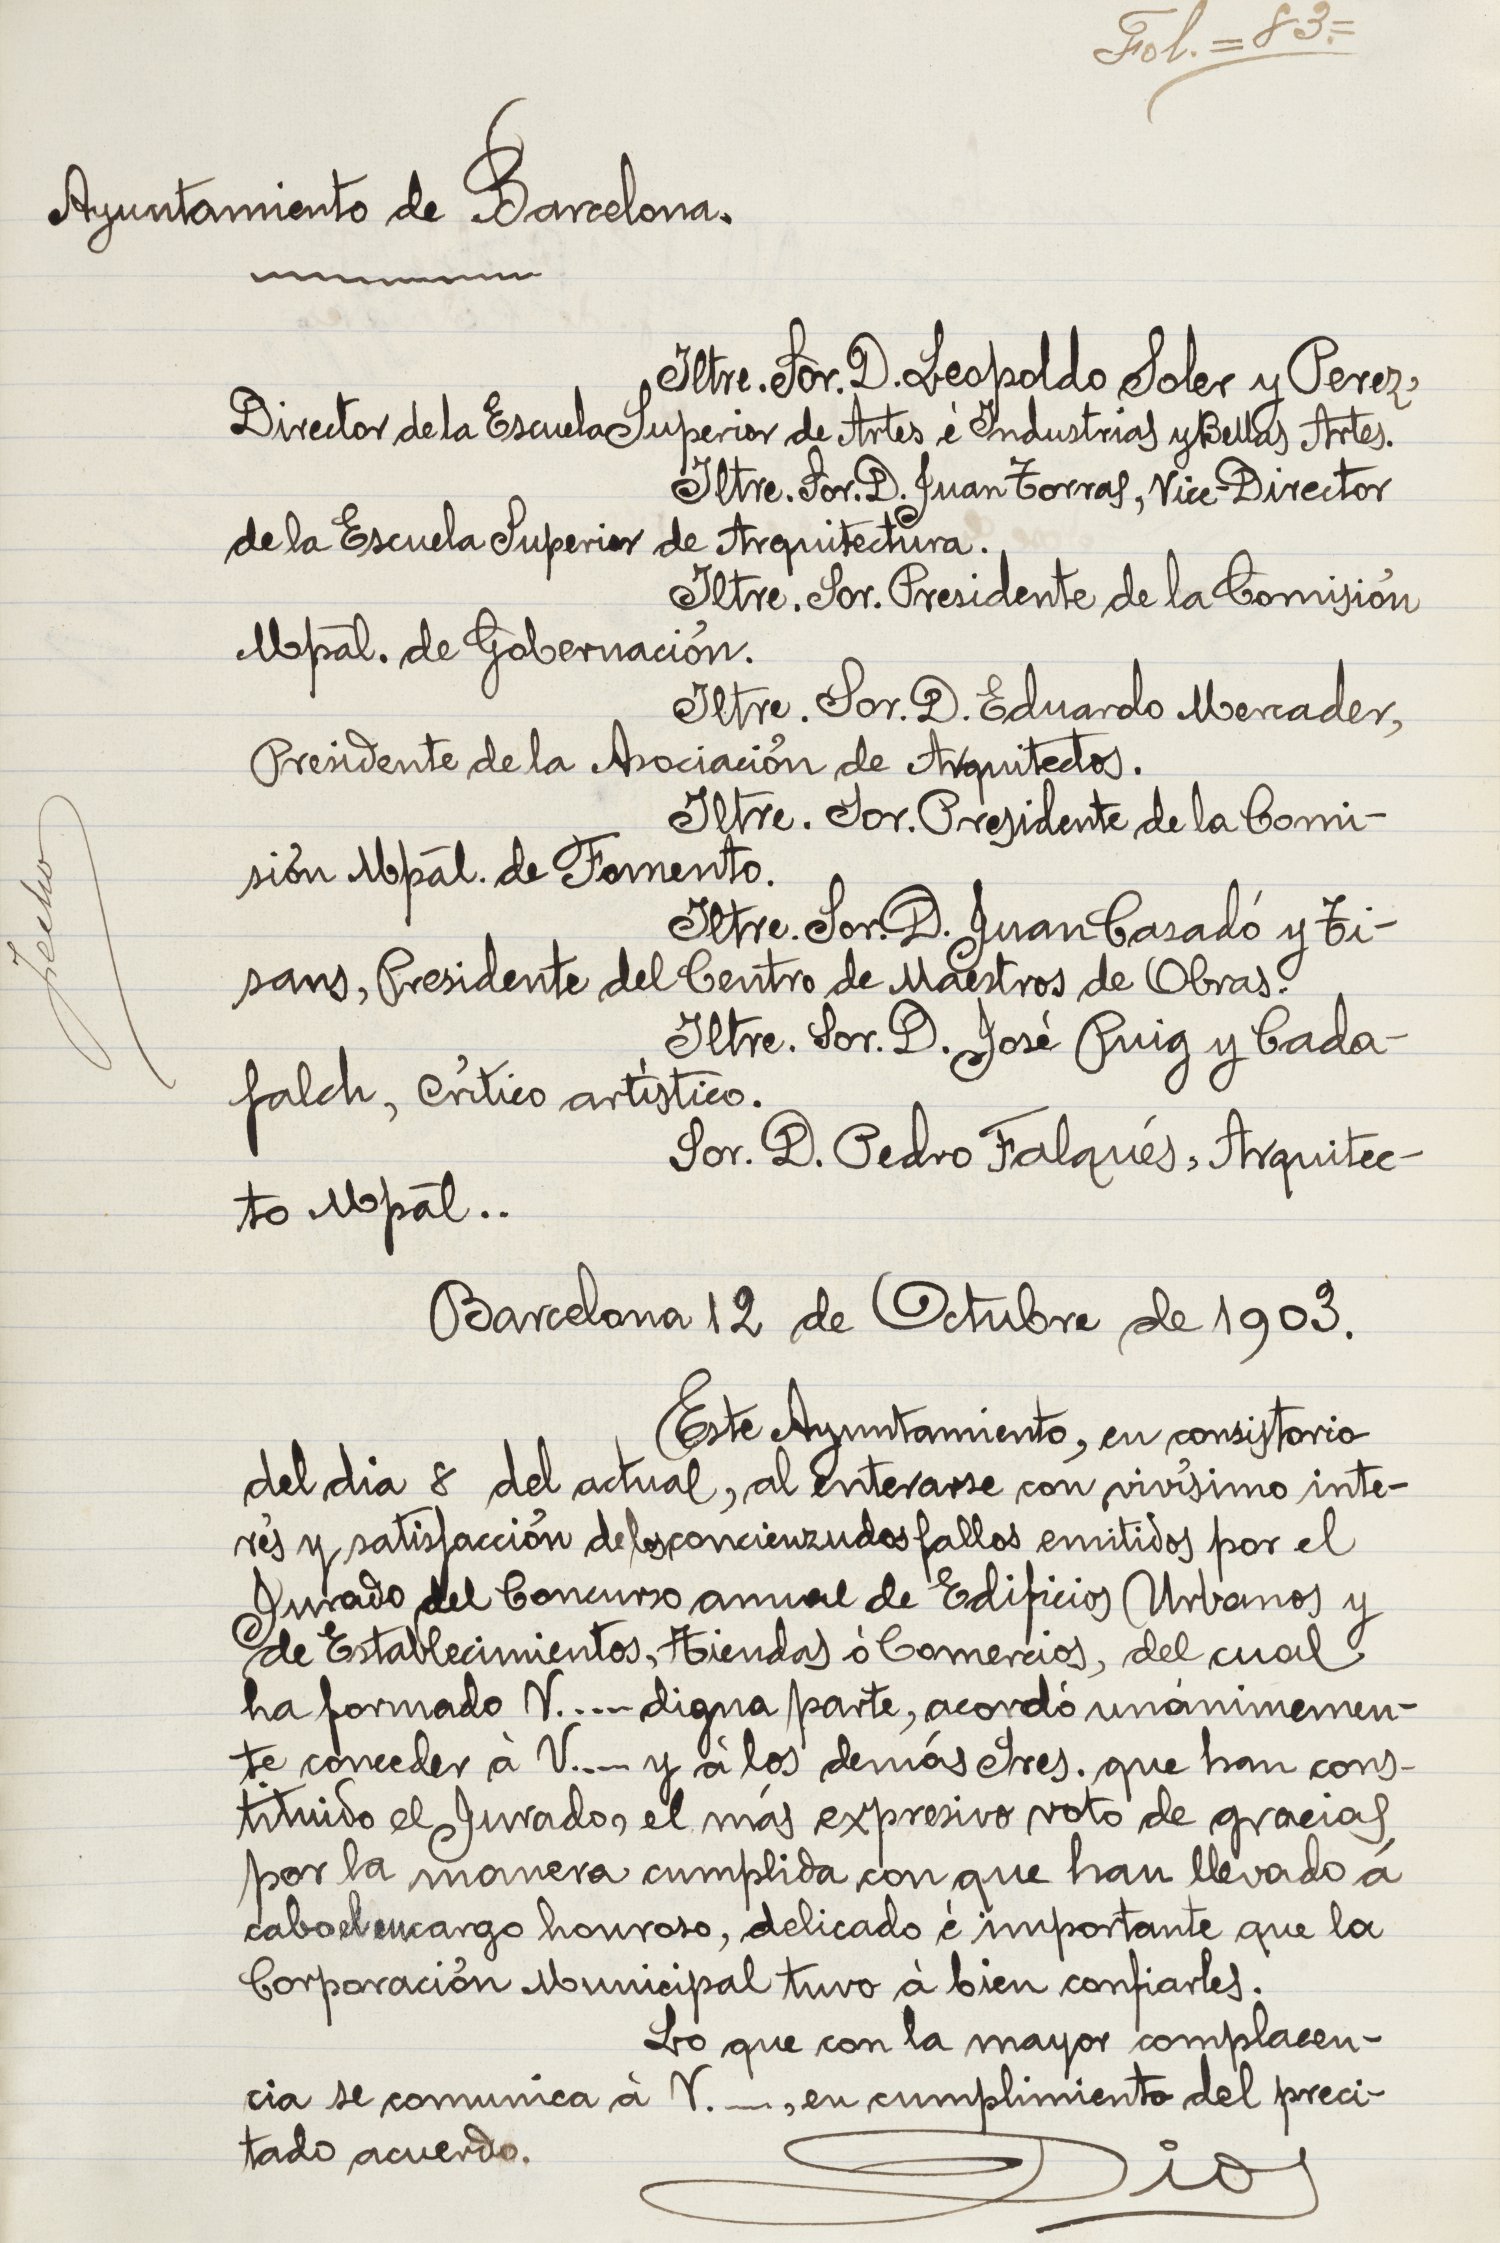 Fol. = 83.=
Ayuntamiento de Barcelona.
Iltre. Sor. D. Leopoldo Soler y Perez,
Director de la Escuela Superior de Artes è Industrias y Bellas Artes.
Iltre. Sor. D. Juan Torras, Vice-Director
de la Escuela Superior de Arquitectura.
Iltre. Sor. Presidente de la Comisión
Mpāl. de Gobernación.
Iltre. Sor. D. Eduardo Mercader,
Presidente de la Asociación de Arquitectos.
Iltre. Sor. Presidente de la Comi-
sión Mpāl. de Fomento.
Iltre. Sor. D. Juan Casadó y Ti-
sans, Presidente del Centro de Maestros de Obras.
Iltre. Sor. D. José Puig y Cada-
falch, crítico artístico.
Sor. D. Pedro Falqués, Arquitec-
to Mpāl..
Fecho
Barcelona 12 de Octubre de 1903.
Este Ayuntamiento, en consistorio
del dia 8 del actual, al enterarse con vivísimo inte-
rés y satisfacción de los concienzudos fallos emitidos por el
Jurado del Concurso anual de Edificios Urbanos y
de Establecimientos, Tiendas ò Comercios, del cual
ha formado V..... digna parte, acordó unánimemen-
te conceder à V.... y à los demás Sres. que han cons-
tituido el Jurado, el más expresivo voto de gracias
por la manera cumplida con que han llevado á
cabo el encargo honroso, delicado è importante que la
Corporación Municipal tuvo à bien confiarles.
Lo que con la mayor complacen-
cia se comunica à V. ..., en cumplimiento del preci-
tado acuerdo.
Dios